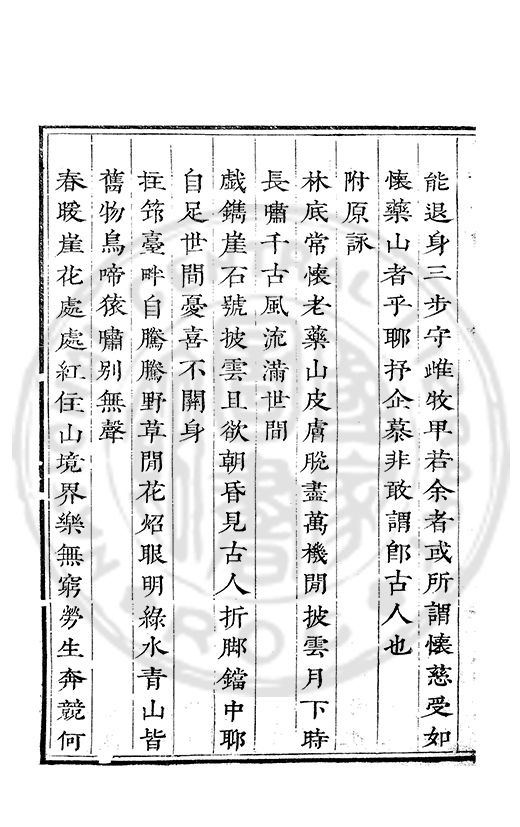 能退身三步守雌牧甲若余者或所謂懷慈受如
懷藥山者乎聊抒企慕非敢謂卽古人也
附原詠
林底常懷老藥山皮膚脫盡萬機閒披雲月下時
長嘯千古風流滿世間
戲鐫崖石號披雲且欲朝昏見古人折脚鐺中聊
自足世間憂喜不關身
拄筇臺畔自騰騰野草閒花炤眼明綠水青山皆
舊物鳥啼猿嘯別無聲
春暖崖花處處紅住山境界樂無窮勞生奔競何